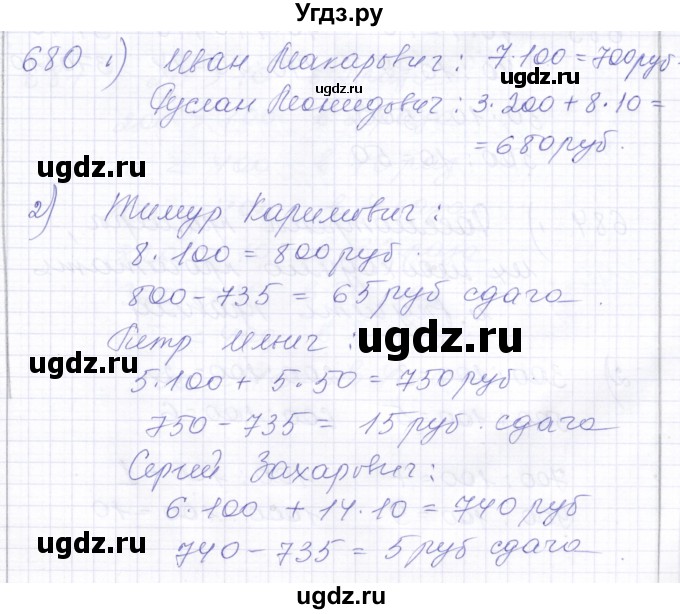 Угдз.ру
680 1) Иван Макарович: 7·100=700руб.
Руслан Леонидович: 3·200+8·10=
=680руб.
ugdz.ru
ugdz.ru
2) Тимур Каримович:
8·100=800руб.
800-735=65руб сдача.
ugdz.ru
Петр Ильич:
ugdz.ru
5·100+5·50=750руб
750-735=15руб. сдача
Сергей Захарович:
6·100+14·10=740руб
ugdz.ru
ugdz.ru
740-735=5руб сдача
ugdz.ru